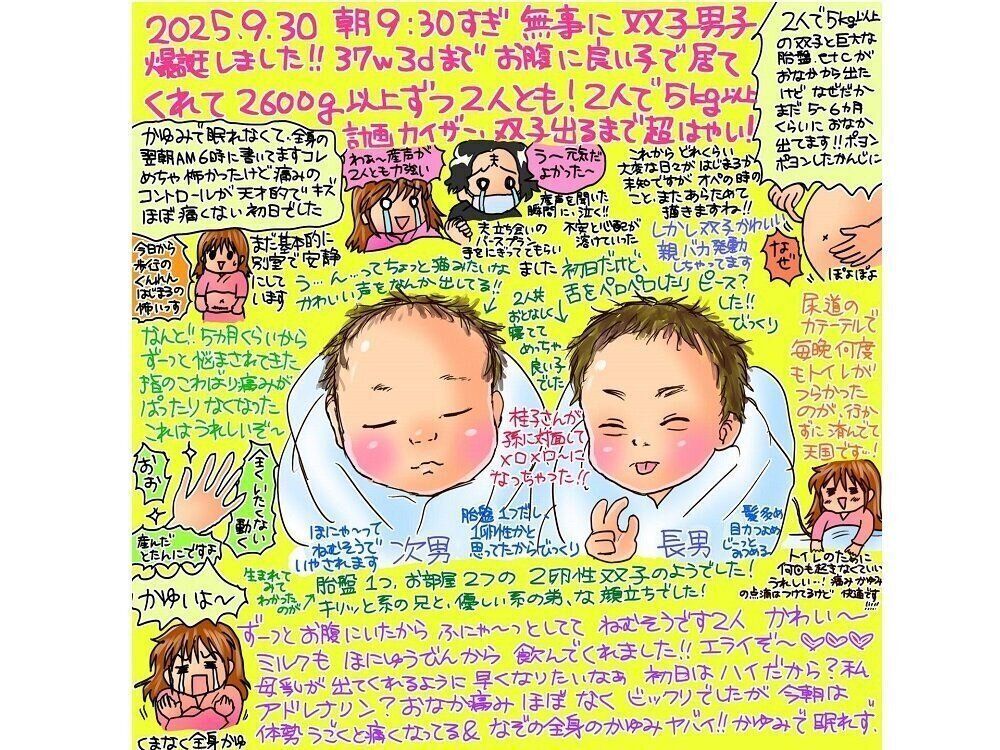 2025.9.30 朝9:30すぎ 無事に 双子男子
爆誕しました!! 37w3dまで お腹に良い子で居て
くれて 2600g以上ずつ2人とも! 2人で5kg以上
計画カイザン、双子出るまで超はやい!
2人で5kg以上
の双子と巨大な
胎盤、etcが
おなかから出た
けど なぜだか
まだ 5~6ヵ月
くらいに おなか
出てます!! ポヨン
ポヨンしたかんじに
なぜ
ぽよぽよ
かゆみで眠れなくて、全身の
翌朝AM6時に書いてますコレ
めちゃ怖かったけど痛みの
コントロールが天才的でキズ
ほぼ痛くない初日でした
わぁ~産声が
2人とも力強い
う~元気だ
よかった~
夫
産声を聞いた
瞬間に、泣く!!
夫立ち会いの
バースプラン
手をにぎっててもらい
ました
不安と心配が
溶けていった
これから どれくらい
大変な日々がはじまるか
未知ですが オペの時の
こと、またあらためて
描きますね!!
しかし双子かわいい
親バカ発動
しちゃってます
今日から
歩行の
くんれん
はじまるの
怖いっす
まだ基本的に
別室で安静
にして
います
う…ん…ってちょっと猫みたいな
かわいい声をなんか出してる!!
初日だけど、
舌をペロペロしたり ピース?
した!!
びっくり
2人共
おとなしく
寝てて
めっちゃ
良い子
でした
なんと!! 5ヵ月くらいから
ずーっと悩まされてきた
指のこわばり痛みが
ぱったりなくなった
これはうれしいぞ~
おお
全くいたくない
動く
産んだ
とたんにですよ
尿道の
カテーテルで
毎晩何度
もトイレが
つらかった
のが、行か
ずに済んでて
天国です…!
桂子さんが
孫に対面して
メロメロ~に
なっちゃった!!
ほにゃ~って
ねむそうで
いやされます
次男
胎盤1つだし、
1卵性かと
思ってたからびっくり
長男
髪多め
目力つよめ
じーっと
みつめる
トイレのために
何回も起きなくていい
うれしい…! 痛みかゆみ
の点滴はつけてるけど 快適です
生まれて
みて
わかった
のが→
胎盤1つ、お部屋2つの 2卵性双子のようでした!
キリッと系の兄と、優しい系の弟、な顔立ちでした!
かゆいよ~
くまなく全身かゆ
ずーっとお腹にいたから ふにゃ~っとしてて ねむそうです2人 かわい~
ミルクも ほにゅうびんから 飲んでくれました!! エライぞ~♡♡♡
母乳が出てくれるように 早くなりたいなぁ 初日は ハイだから? 私
アドレナリン? おなか痛み ほぼ なく ビックリでしたが 今朝は
体勢うごくと痛くなってる& なぞの全身のかゆみヤバイ!! かゆみで眠れず、